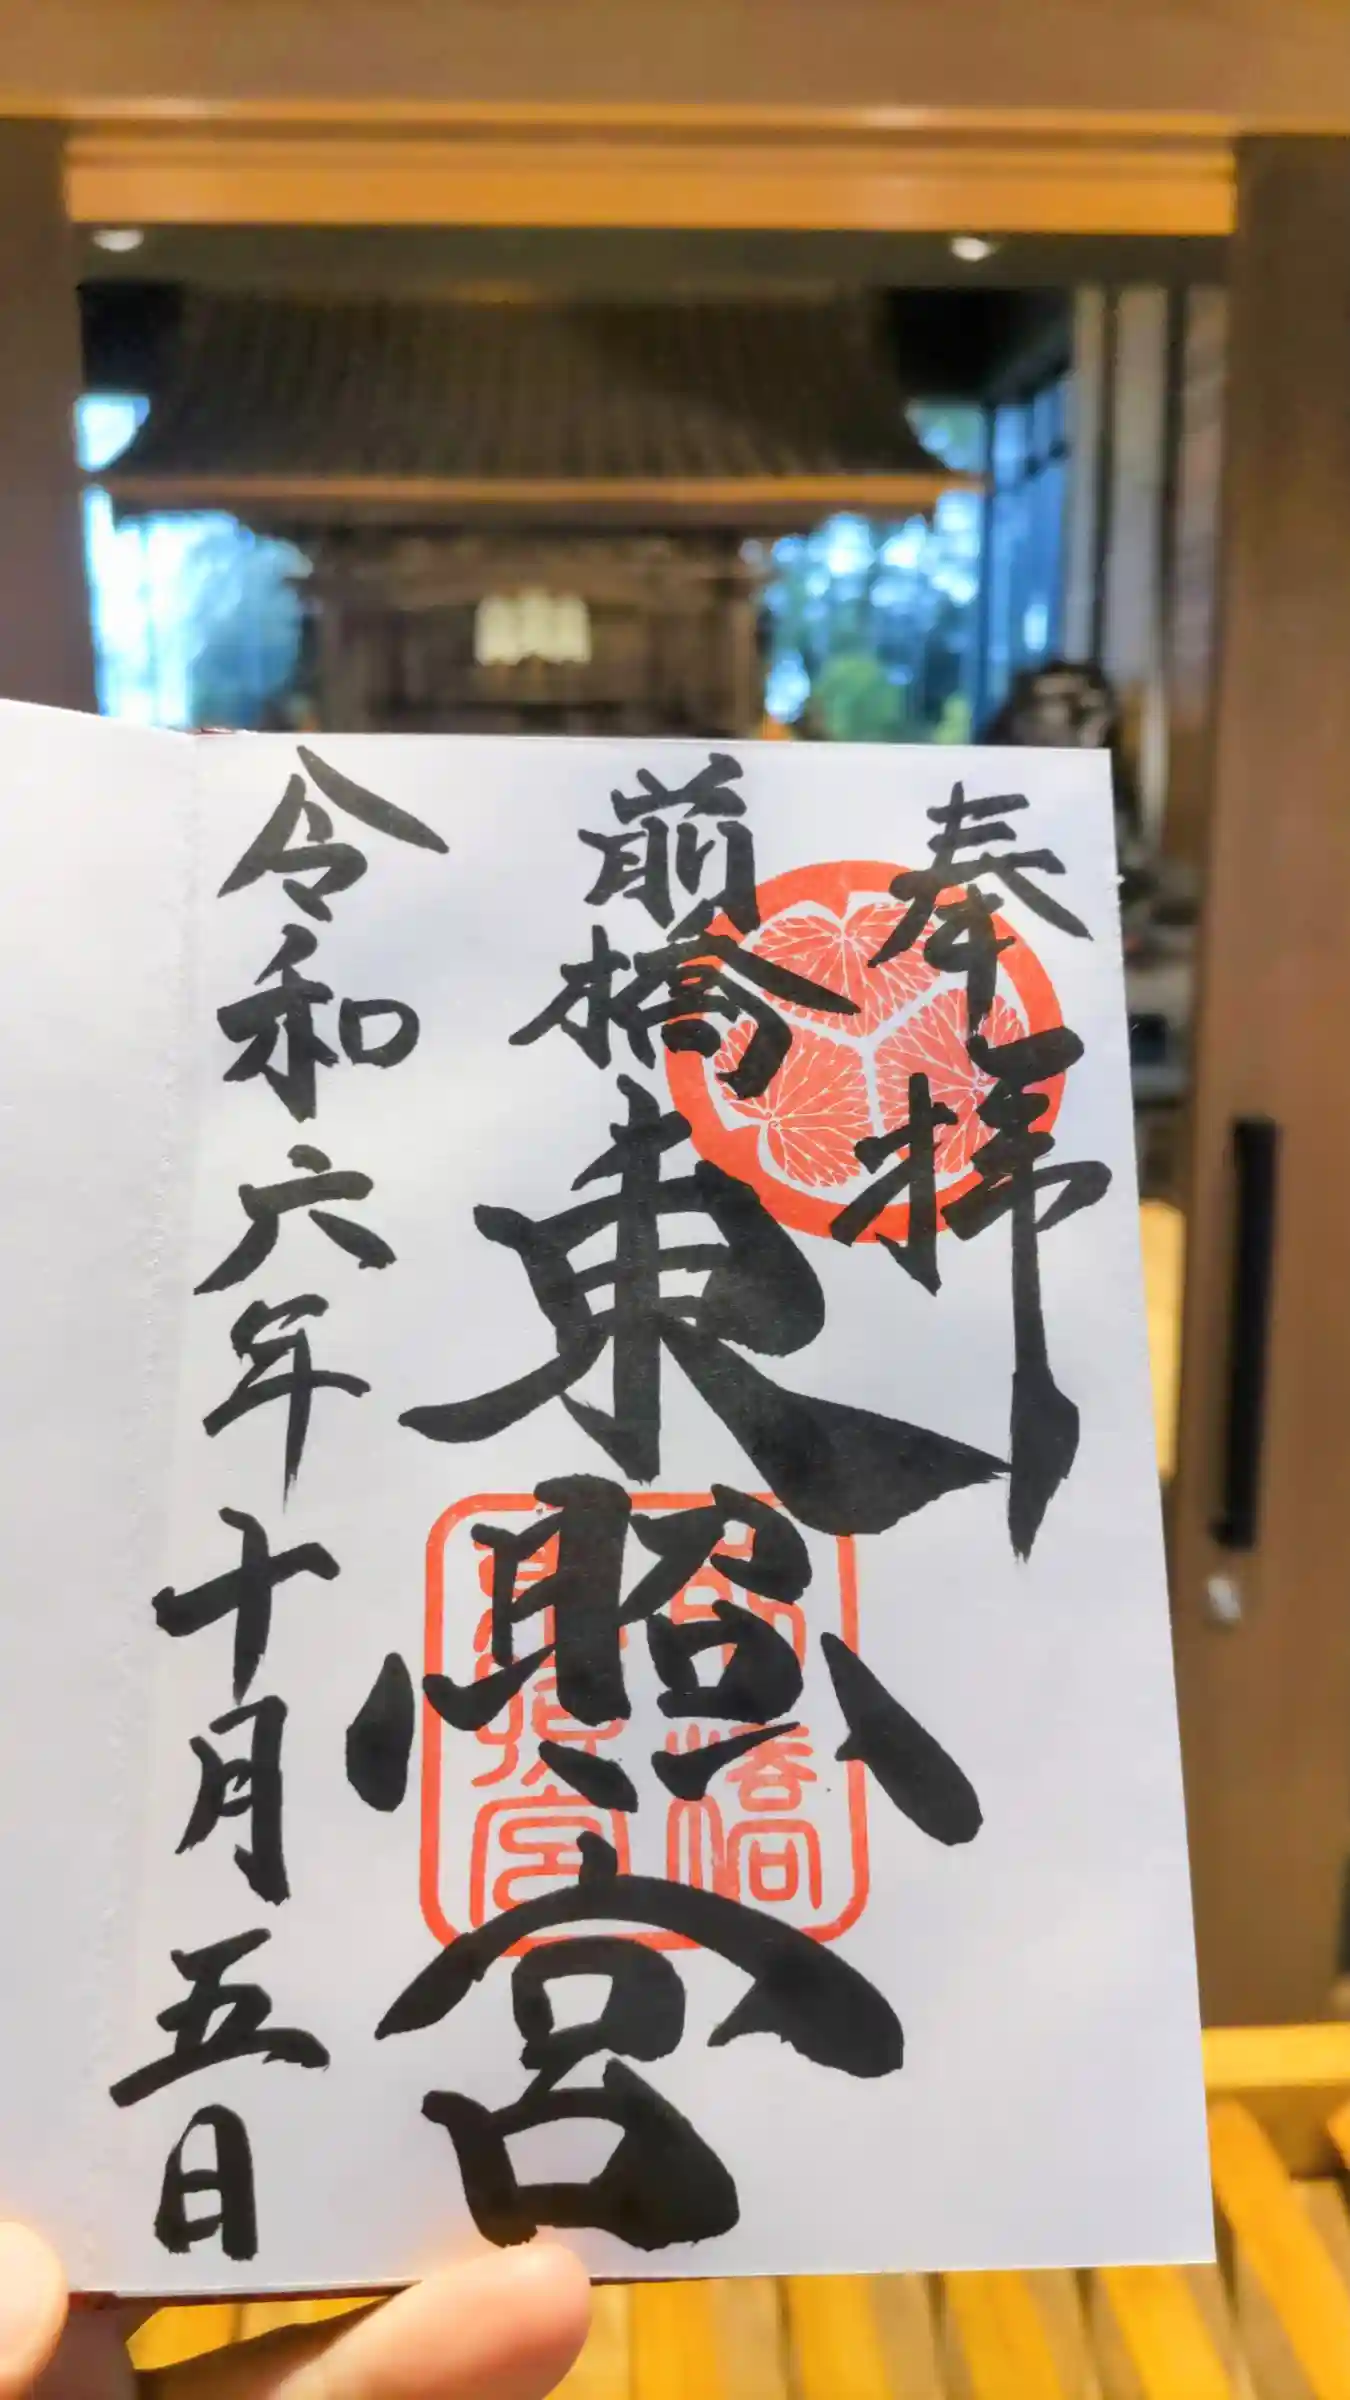 奉拝
前橋東照宮
令和六年十月五日
前橋
東照宮